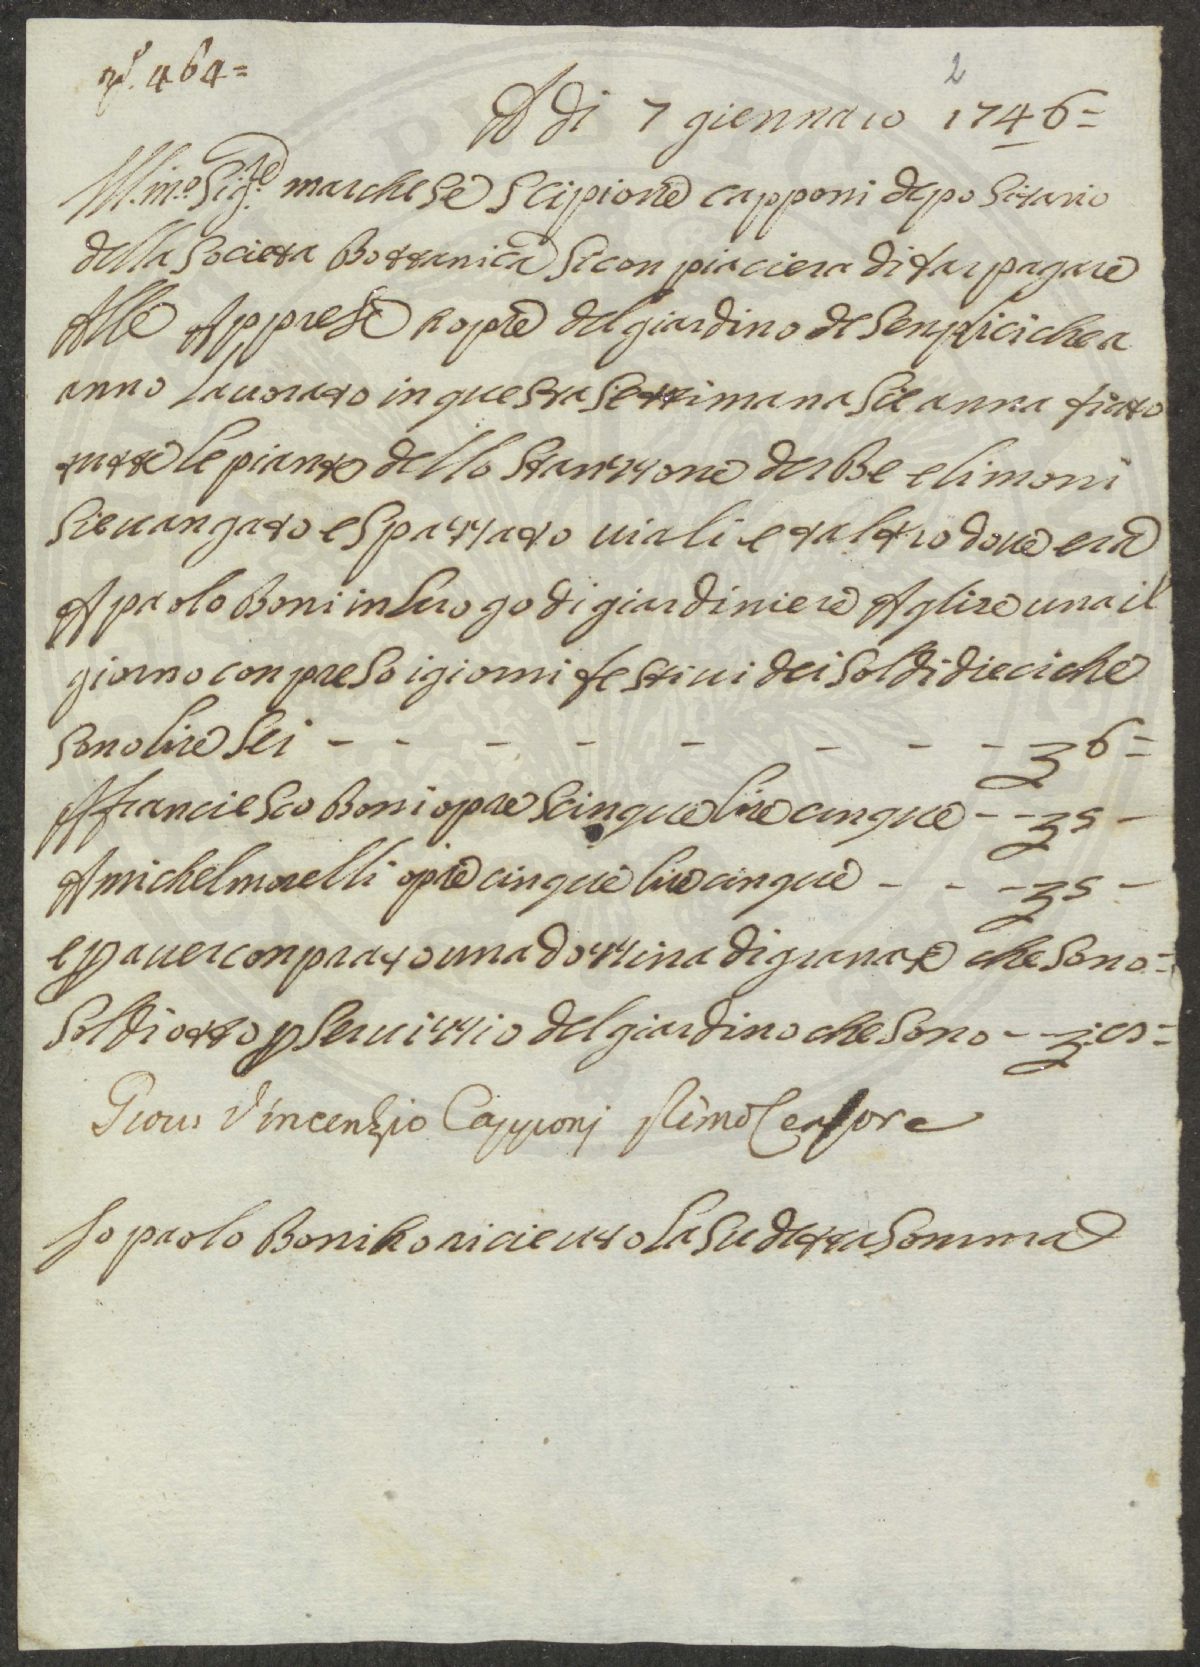 n.° 464=
2
A di 7 giennaio 1746=
Ill.mo Sig.re marchese Scipione capponi depositario
della Societta Bottanica Si conpiaciera di far pagare
Alle Apprese hopre del giardino de Senplici che a
anno lavorato in questa Settimana Sie anna fiato
tutte le piante dello Stanzzone derbe e limoni
Sie vangato e Spazzato viali e taltro dove era
A paolo Boni in luogo di giardiniere A glire una il
giorno conpreso i giorni festivi dei Soldi dieci che
Sono lire Sei - - - - - - - - 6=
A franciesco Boni opre cinque lire cinque - - 5 -
A michel morelli opre cinque lire cinque - - - 5 -
e p aver conprato una dozzina di granate che Sono=
Soldi otto p Servizzio del giardino che Sono - -
Giov. Vincenzio Capponi Censore
Io paolo Boni ho riceuto la Sudetta Somma